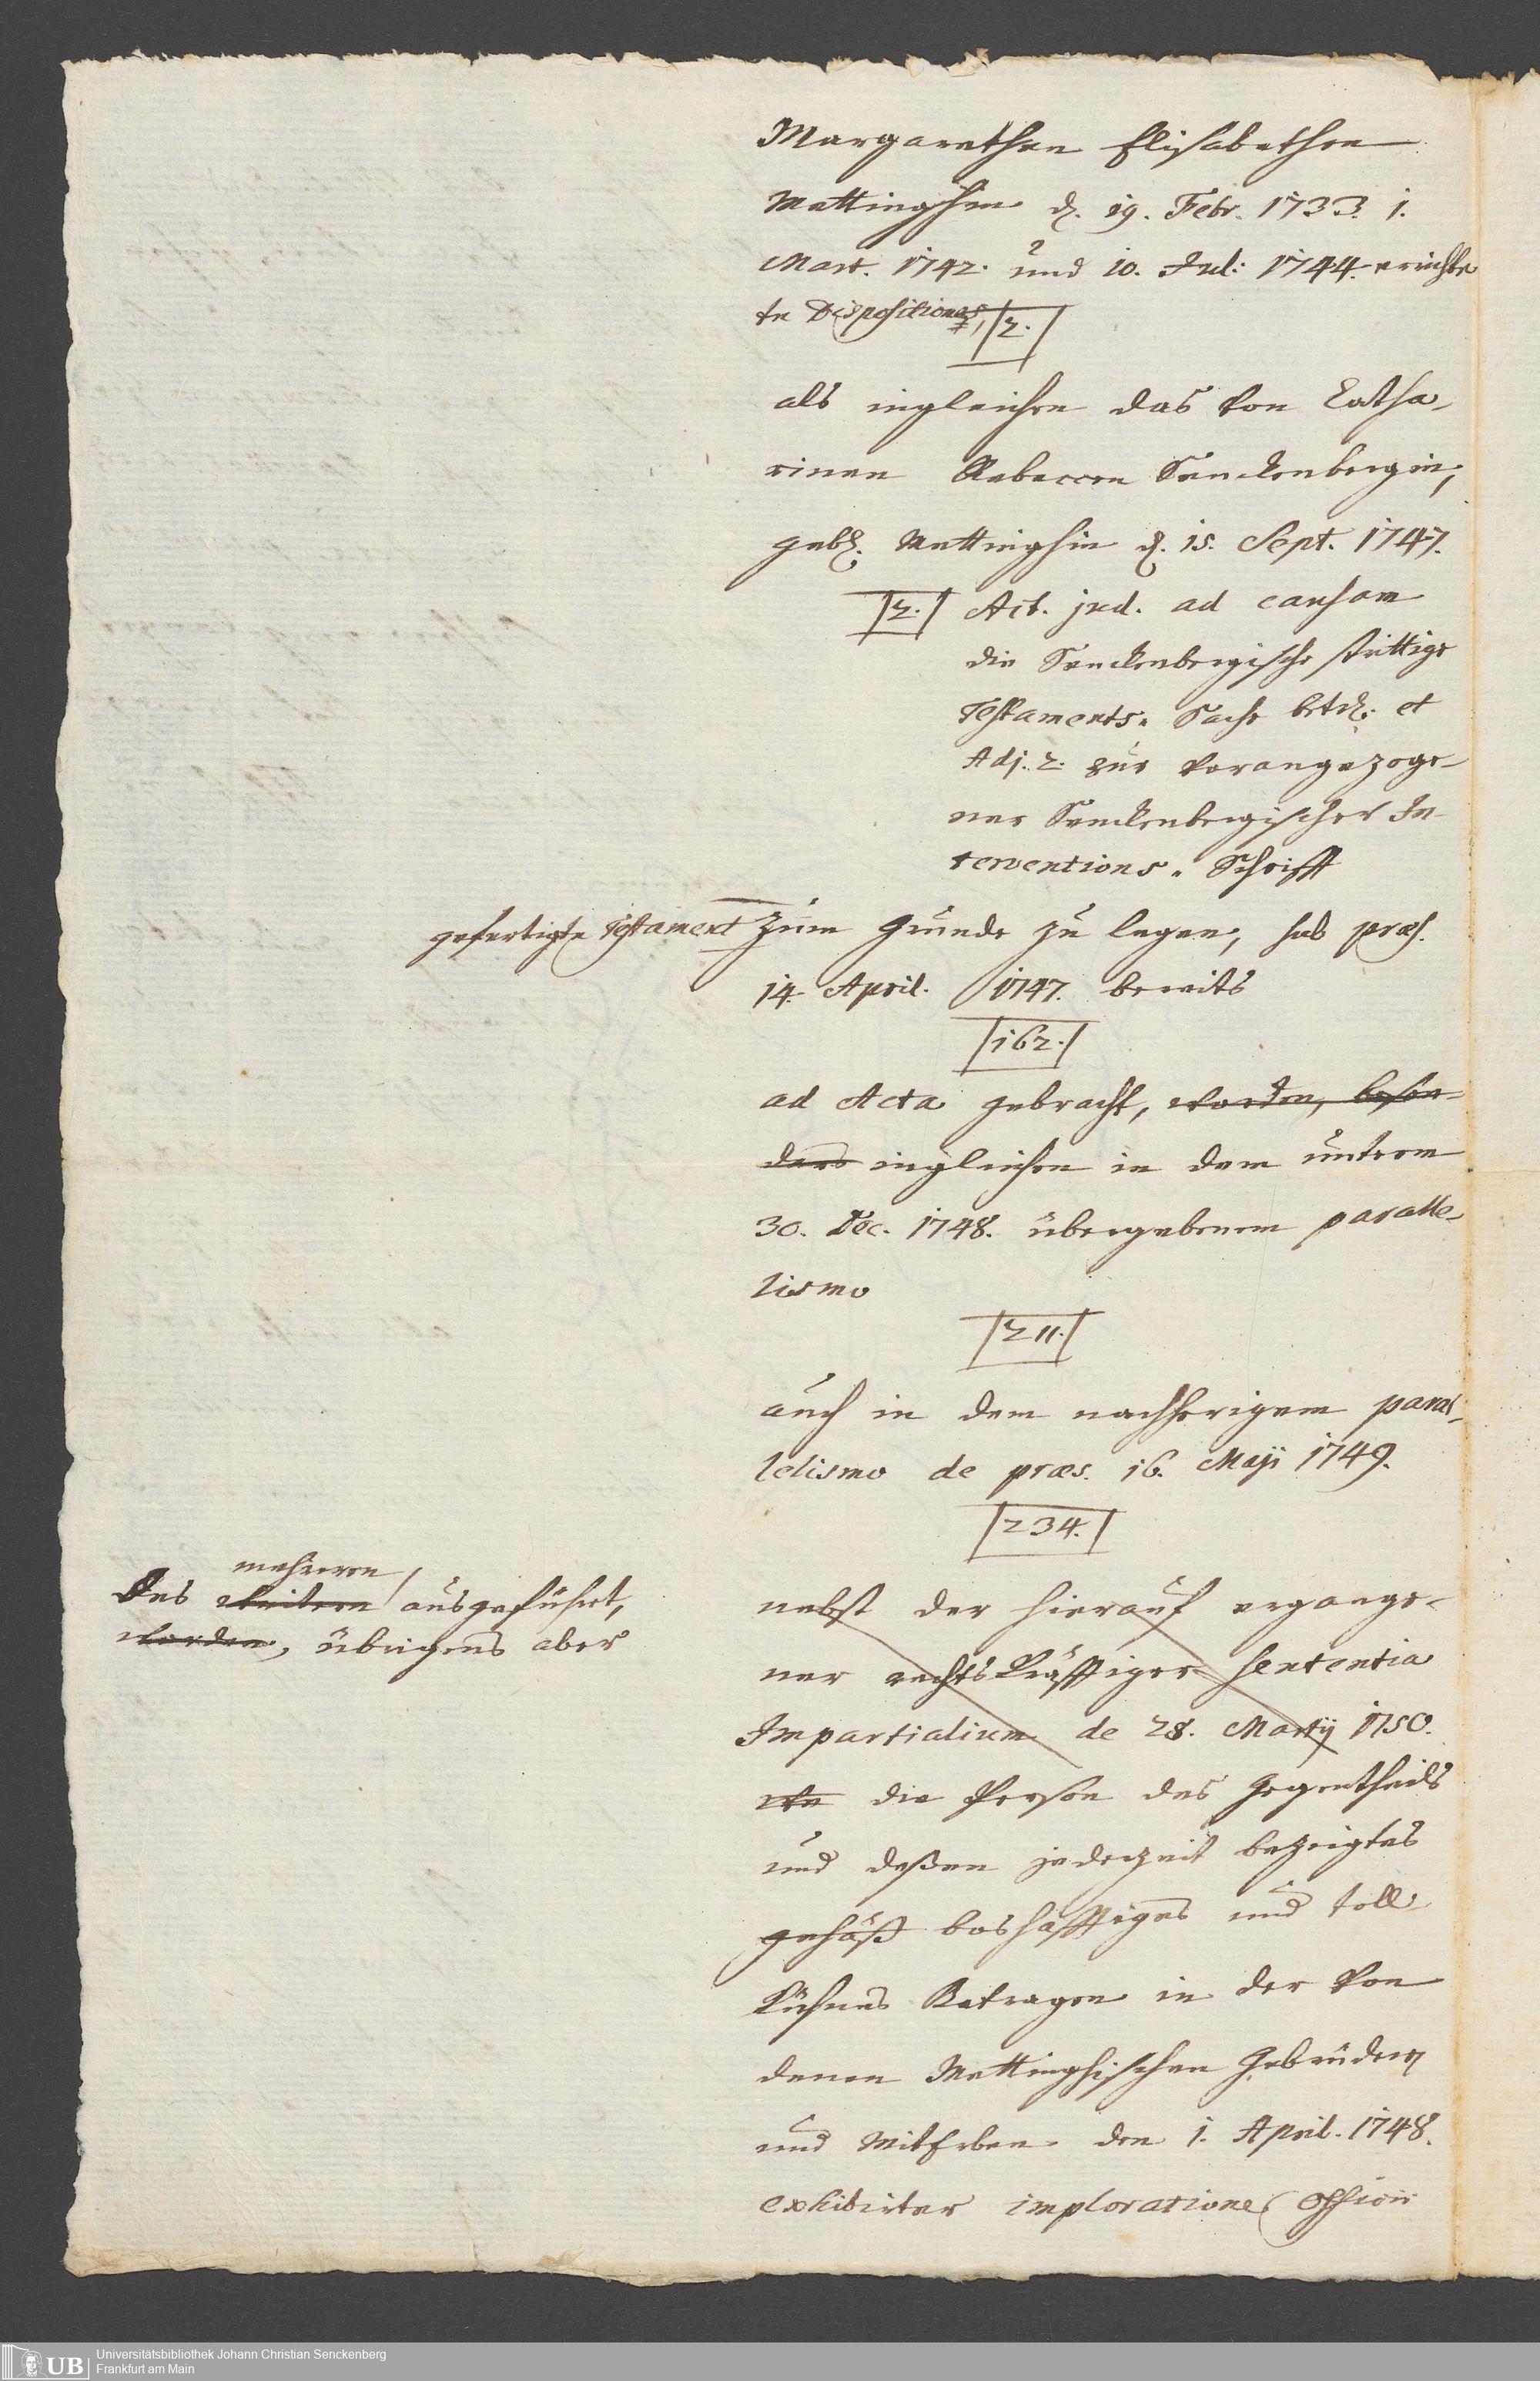 Margarethen Elisabethen
Mettinghin d. 19. Febr. 1733. 1.
Mart. 1742. und 10. Jul: 1744. errichte
te Dispositiones, 2.
als ingleichen das von Catha-
rinen Rebeccen Senckenbergin,
geb. Mettinghin d. 15. Sept. 1747.
2. Act. jud. ad causam
die Senckenbergische strittige
Testaments-Sache betr. et
Adj. 2. zur vorangezoge-
ner Senckenbergischer In
terventions-Schrifft
gefertigte Testament zum Grunde zu legen, sub præs.
14. April. 1747. bereits
162.
ad Acta gebracht, worden, beson-
ders ingleichen in dem unterm
30. Dec. 1748. übergebenem paralle-
lismo
211.
auch in dem nachherigem paral-
lelismo de præs. 16. Maji 1749.
234.
mehreren
Des weitern ausgeführt,
worden, übrigens aber
nebst der hierauf ergange-
ner rechtskräfftiger sententia
Impartialium de 28. Martij 1750.
die Person des Gegentheils
und deßen jederzeit bezeigtes
gehäß boshafftiges und toll
kühnes Betragen in der von
denen Mettinghischen Gebrüdern
und MitErben den 1. April. 1748.
exhibirter imploratione Officii
UB
Universitätsbibliothek Johann Christian Senckenberg
Frankfurt am Main